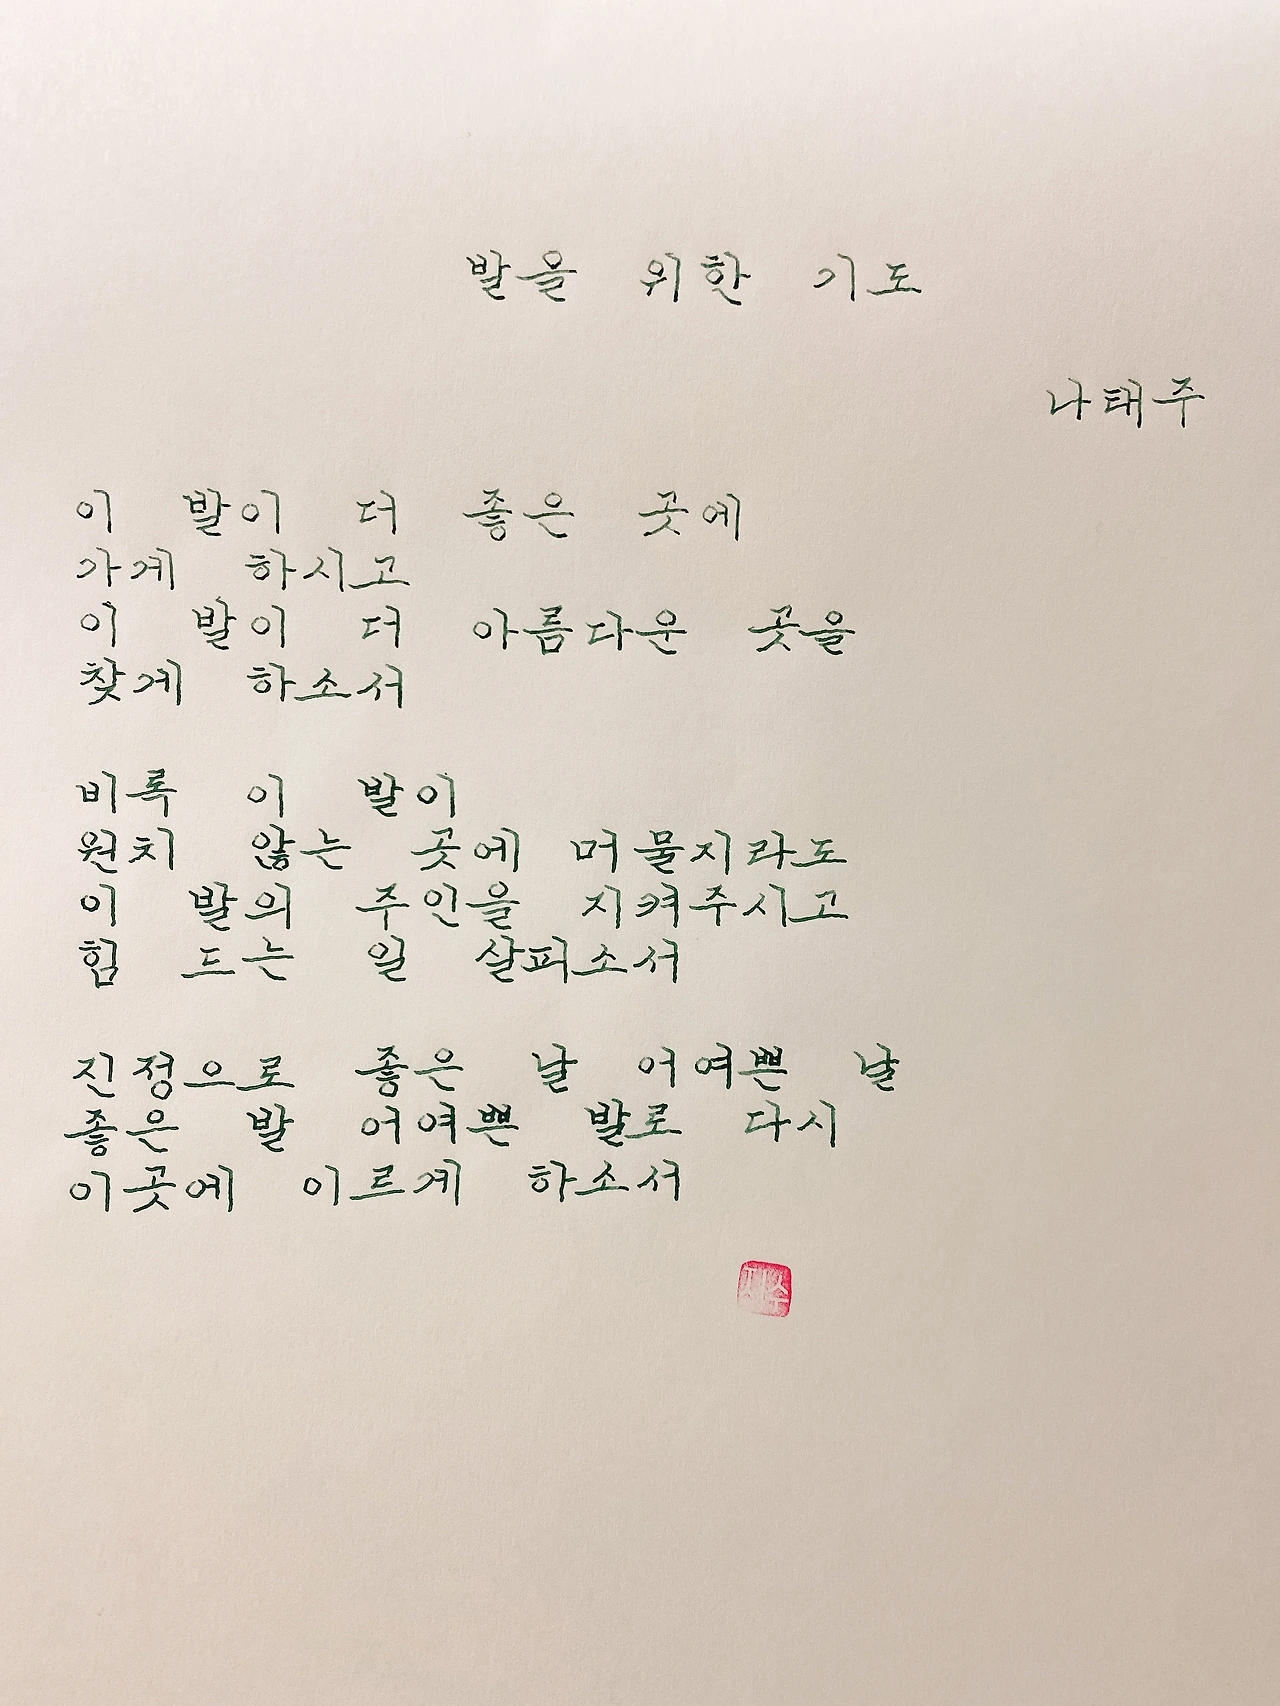 발을 위한 기도
나태주
이 발이 더 좋은 곳에
가게 하시고
이 발이 더 아름다운 곳을
찾게 하소서
비록 이 발이
원치 않는 곳에 머물지라도
이 발의 주인을 지켜주시고
힘 드는 일 살펴소서
진정으로 좋은 날 어여쁜 날
좋은 발 어여쁜 발로 다시
이곳에 이르게 하소서